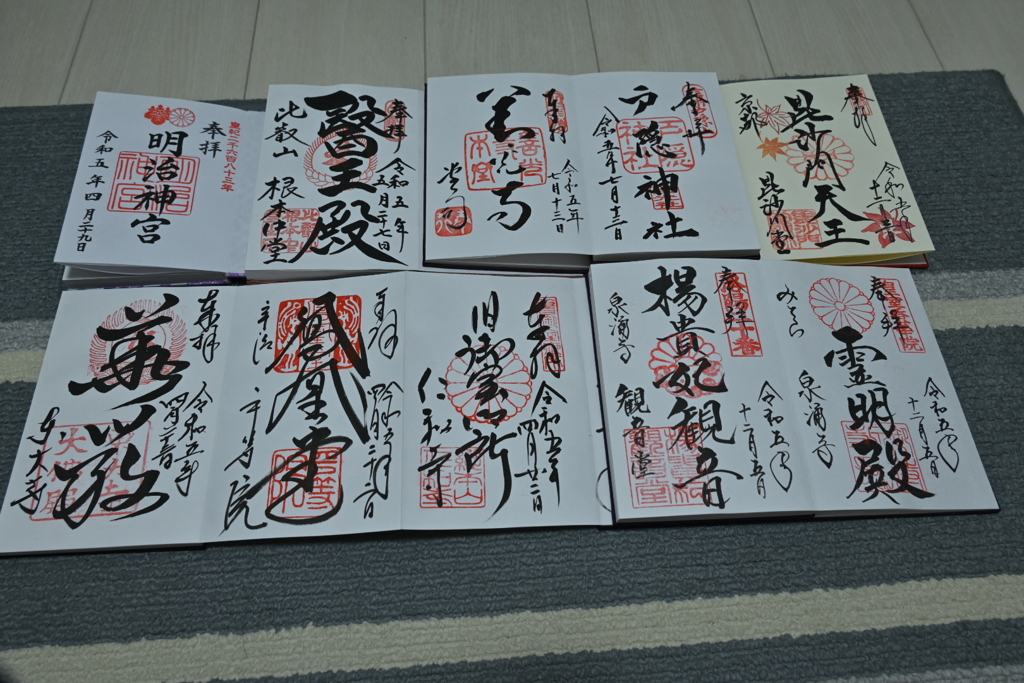 皇紀二千六百八十三年
奉拝
明治神宮
令和五年四月二十九日
奉拝
令和五年
五月二十七日
醫王殿
比叡山
根本中堂
令和五年
七月十三日
善光寺
奉拝
戸隠神社
令和五年七月十三日
奉拝
毘沙門天王
京都
毘沙門堂
奉拝
令和五年
華厳
東大寺
奉拝
鳳凰堂
宇治
平等院
奉拝
令和五年
四月廿二日
旧御室御所
仁和寺
奉拝
令和五年
十二月五日
霊明殿
みてら
泉涌寺
奉拝
令和五年
十二月五日
楊貴妃観音
泉涌寺
観音堂